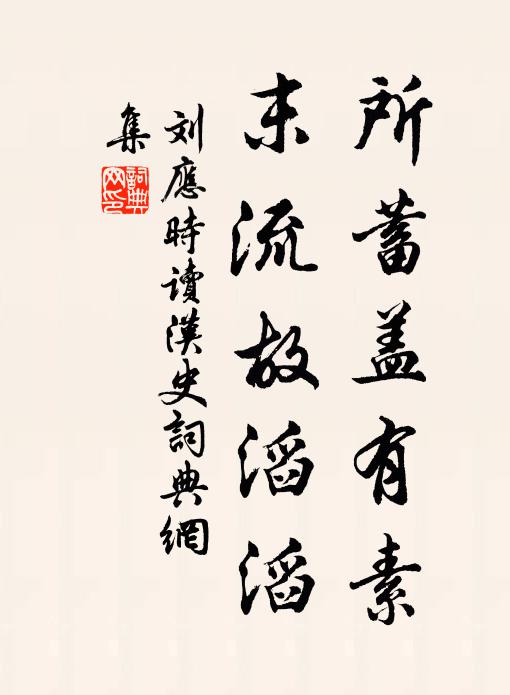 所蓄盖有素
末流故滔滔
刘應時讀漢史詞典網
集
詞典
网印